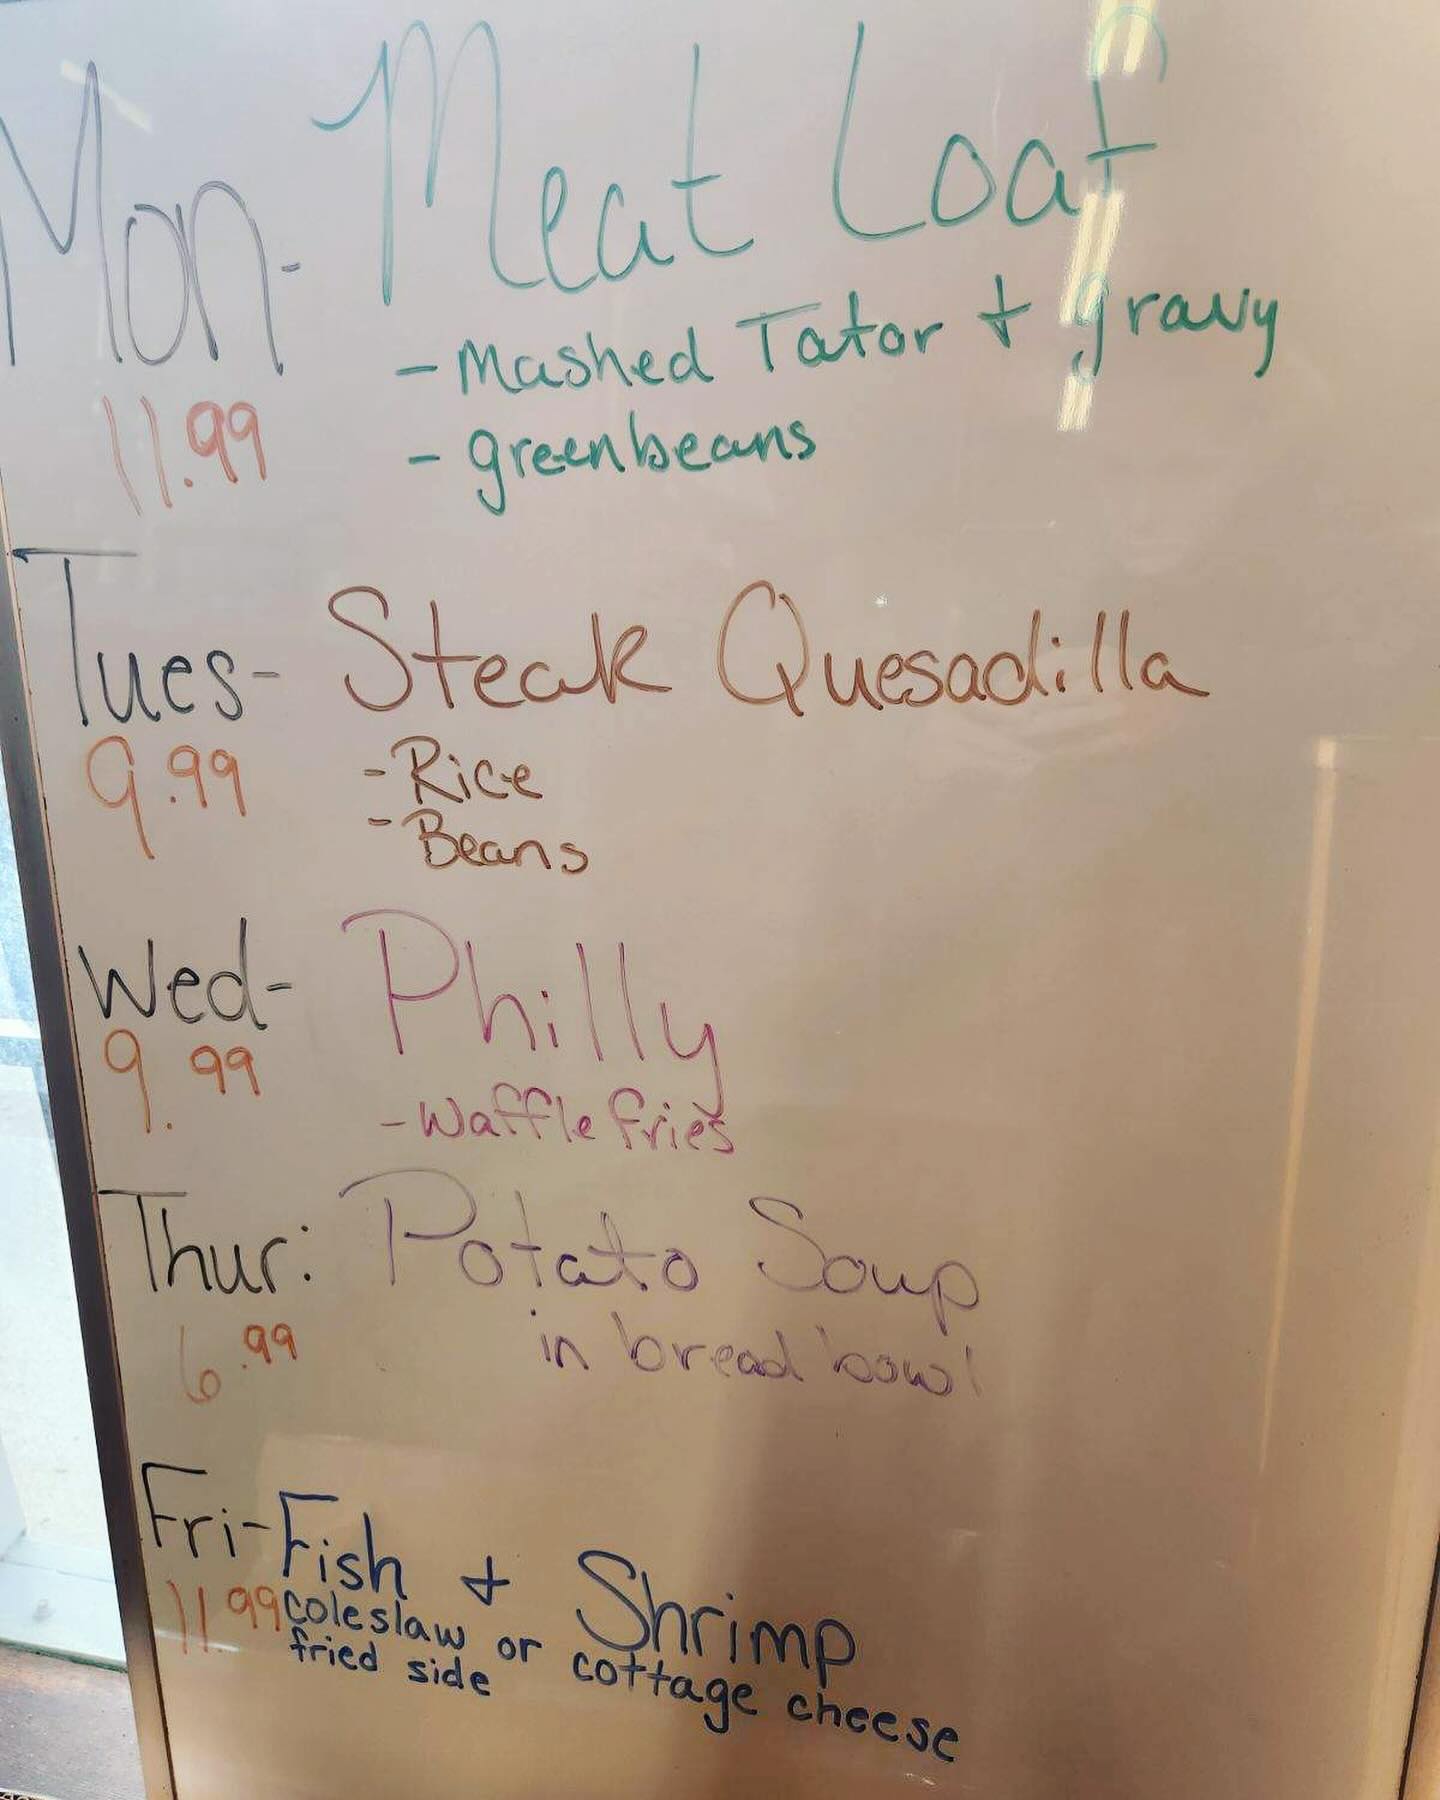 Mon- Meat Loaf
- Mashed Tator + gravy
11.99
- greenbeans
Tues- Steak Quesadilla
9.99
- Rice
- Beans
Wed- Philly
9.99
- Waffle fries
Thur: Potato Soup
6.99
in bread bowl
Fri- Fish + Shrimp
11.99
coleslaw or cottage cheese
fried side